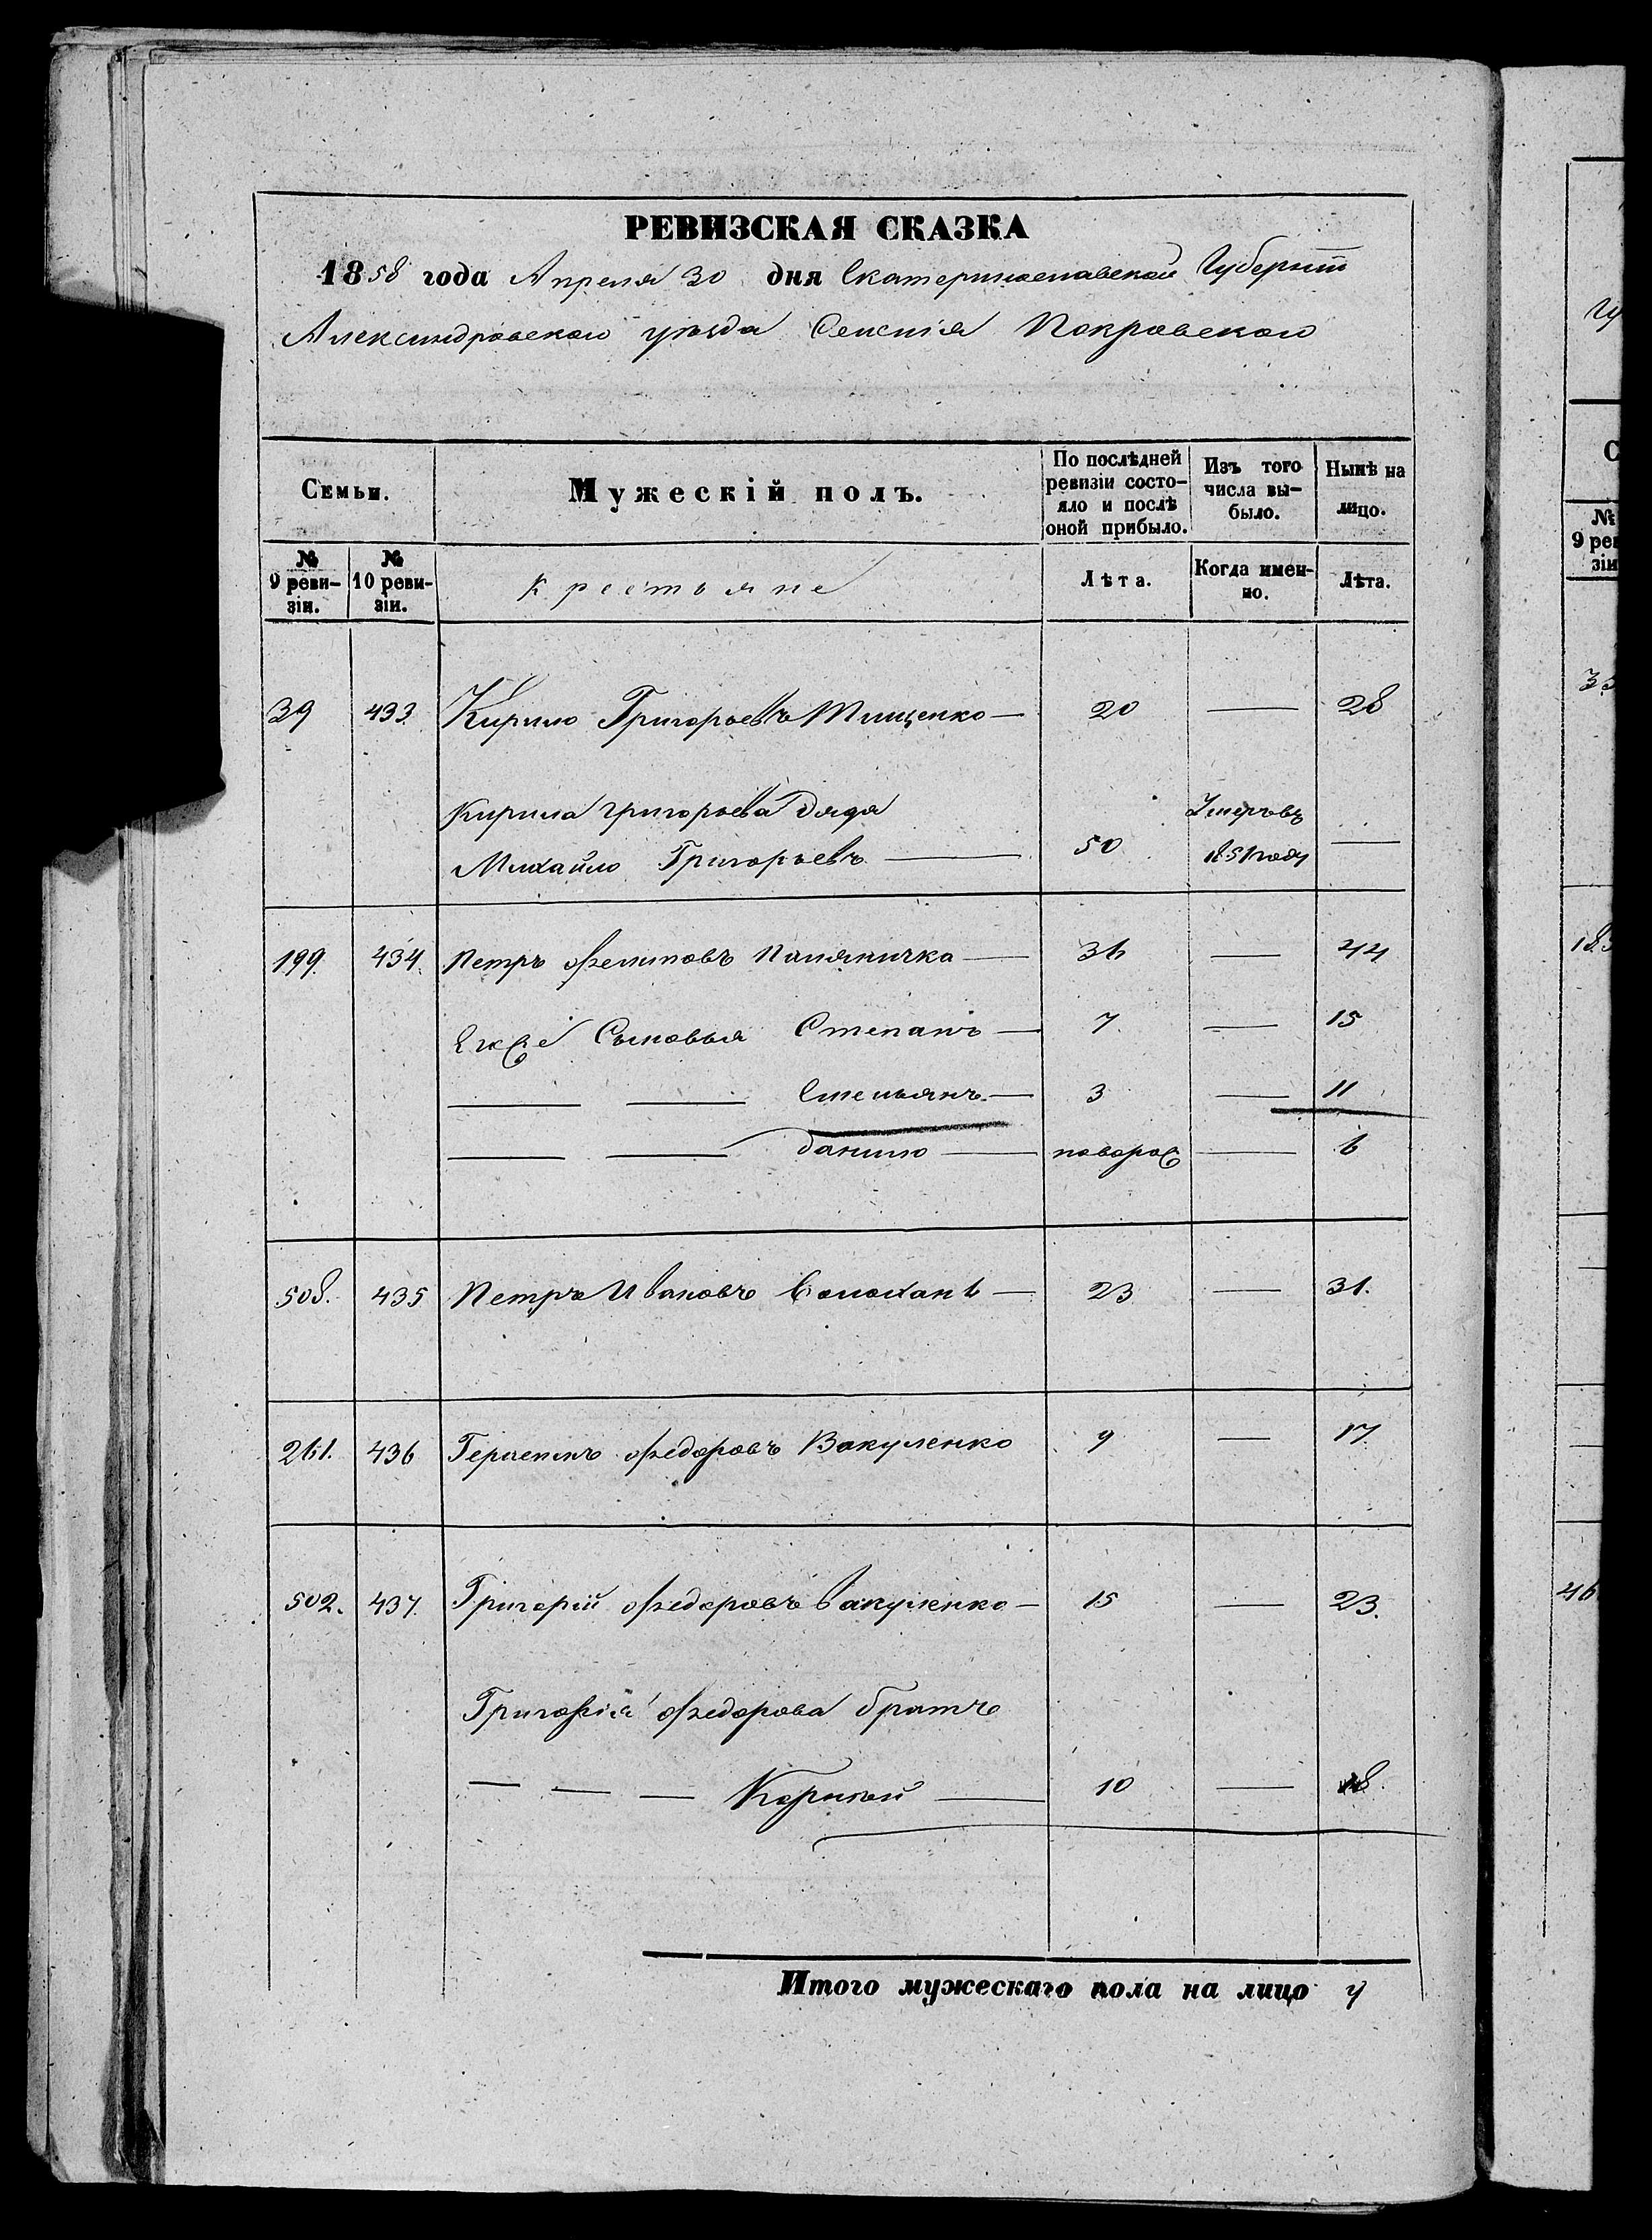 РЕВИЗСКАЯ СКАЗКА
1858 года Апреля 30 дня Екатеринославской Губерніи
Александровскаго уѣзда Селенія Покровскаго
Семьи.
Мужескій полъ.
По послѣдней ревизіи состо-яло и послѣ оной прибыло.
Изъ того числа вы-было.
Нынѣ на лицо.
№ 9 реви-зіи.
№ 10 реви-зіи.
крестьяне
Лѣта.
Когда имен-но.
Лѣта.
39 433. Кирило Григорьевъ Тищенко — 20 — 28
Кирила Григорьева дядя Умеръ въ
Михайло Григорьевъ — 50 1851 году —
199. 434. Петръ Филиповъ Паляничка — 36 — 44
Его Сыновья Степанъ — 7 — 15
— — Емельянъ — 3 — 11
— — Данило — новорож — 6
508. 435 Петръ Ивановъ — 23 — 31.
261. 436 Герасимъ Федоровъ Вакуленко 9 — 17.
502. 437. Григорій Федоровъ Вакуленко — 15 — 23.
Григорія Федорова братъ
— — — Корнѣй — 10 — 18.
Итого мужескаго пола на лицо